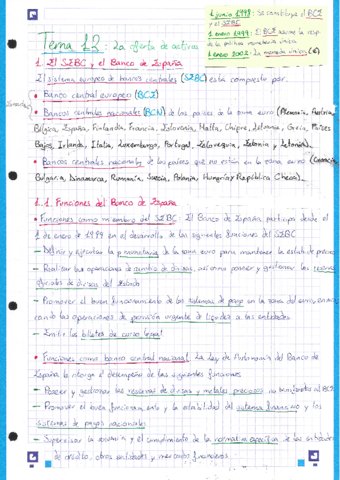 1 junio 1998: Se constituye el BCE y el SEBC
1 enero 1999: El BCE asume la resp.
de la política monetaria única
1 enero 2002: La moneda única (€)
Tema 12: La oferta de activos
1. El SEBC y el Banco de España
El sistema europeo de bancos centrales (SEBC) está compuesto por:
• Banco central europeo (BCE)
• Bancos centrales nacionales (BCN) de los países de la zona euro (Alemania, Austria,
Bélgica, España, Finlandia, Francia, Eslovenia, Malta, Chipre, Letonia, Grecia, Países
Bajos, Irlanda, Italia, Luxemburgo, Portugal, Eslovaquia, Estonia y Lituania).
• Bancos centrales nacionales de los países que no están en la zona euro (Croacia,
Bulgaria, Dinamarca, Rumanía, Suecia, Polonia, Hungría y República Checa).
1.1. Funciones del Banco de España
• Funciones como miembro del SEBC: El Banco de España participa desde el
1 de enero de 1999 en el desarrollo de las siguientes funciones del SEBC
– Definir y ejecutar la pm monetaria de la zona euro para mantener la estab. de precios
– Realizar las operaciones de cambio de divisas, así como poseer y gestionar las reservas
oficiales de divisas del Estado
– Promover el buen funcionamiento de los sistemas de pago en la zona del euro,
con las operaciones de provisión urgente de liquidez a las entidades
– Emitir los billetes de curso legal
• Funciones como banco central nacional: La Ley de Autonomía del Banco de
España le otorga el desempeño de las siguientes funciones
– Poseer y gestionar las reservas de divisas y metales preciosos no transferidas al BCE
– Promover el buen funcionamiento y la estabilidad del sistema financiero y los
sistemas de pagos nacionales
– Supervisar la solvencia y el cumplimiento de la normativa específica de las entidades
de crédito, otras entidades y mercados financieros